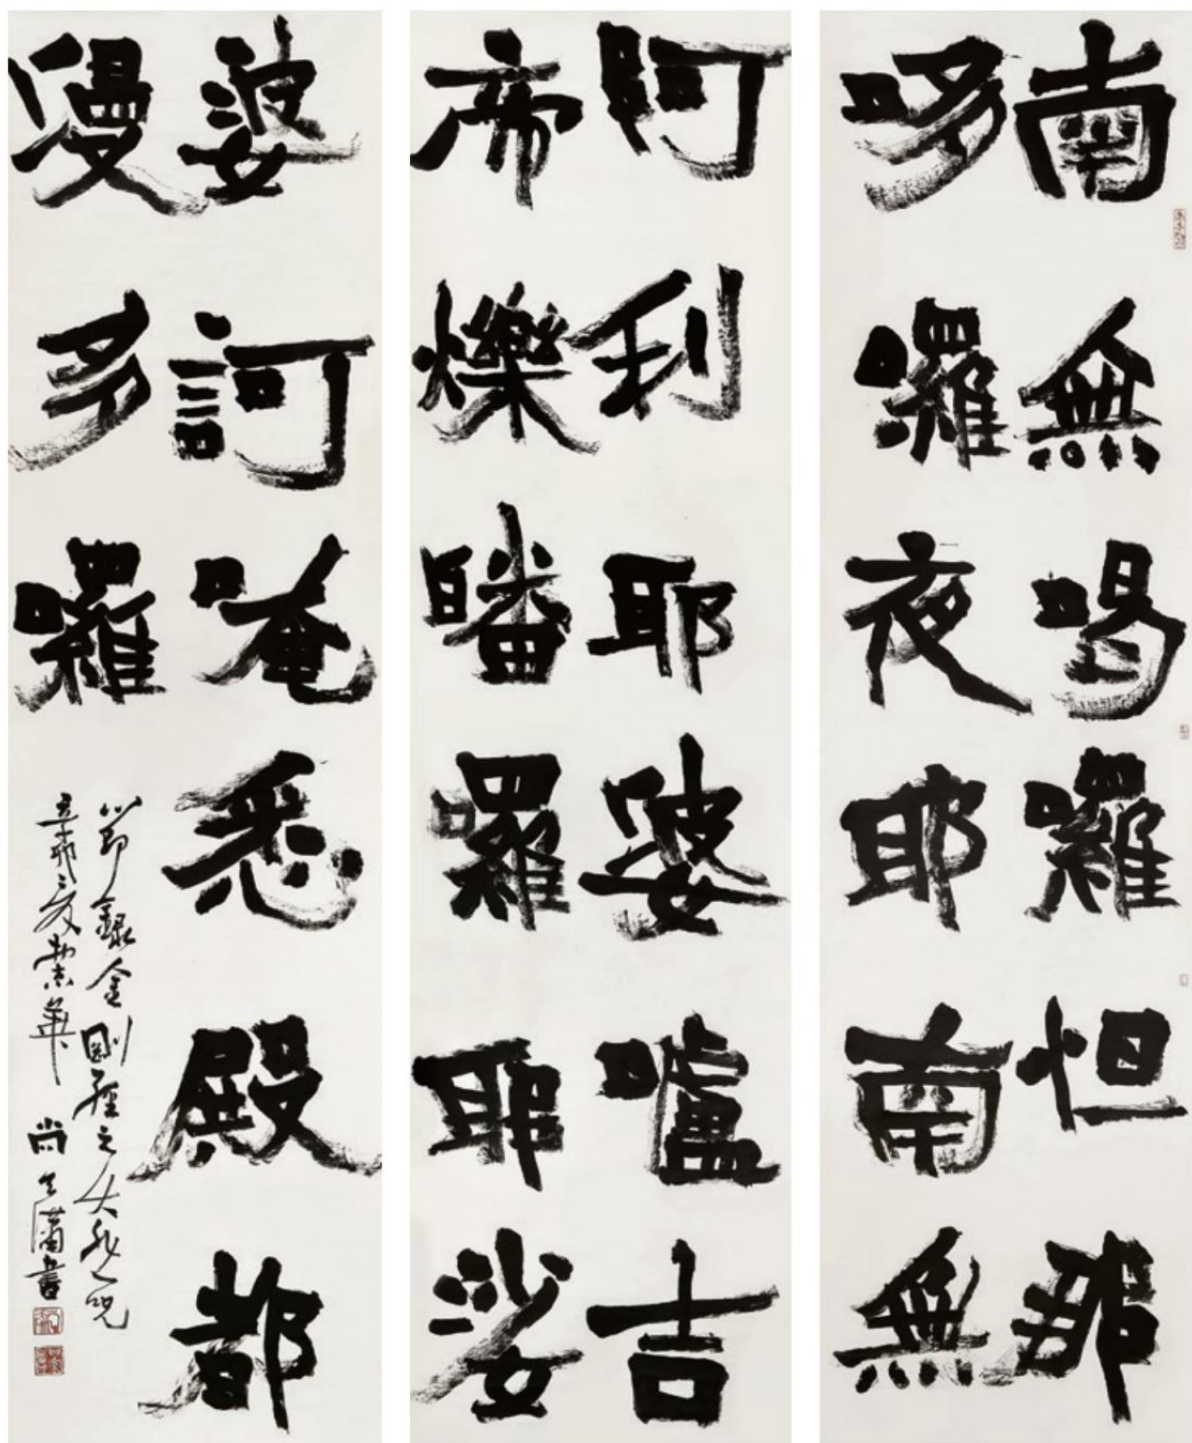 南無喝囉怛那
哆囉夜耶南無
阿利耶婆嚧吉
帝爍皤囉耶娑
婆訶唵悉殿都
漫多囉
節錄金剛經之大悲咒
辛卯之夏 尚天潇書